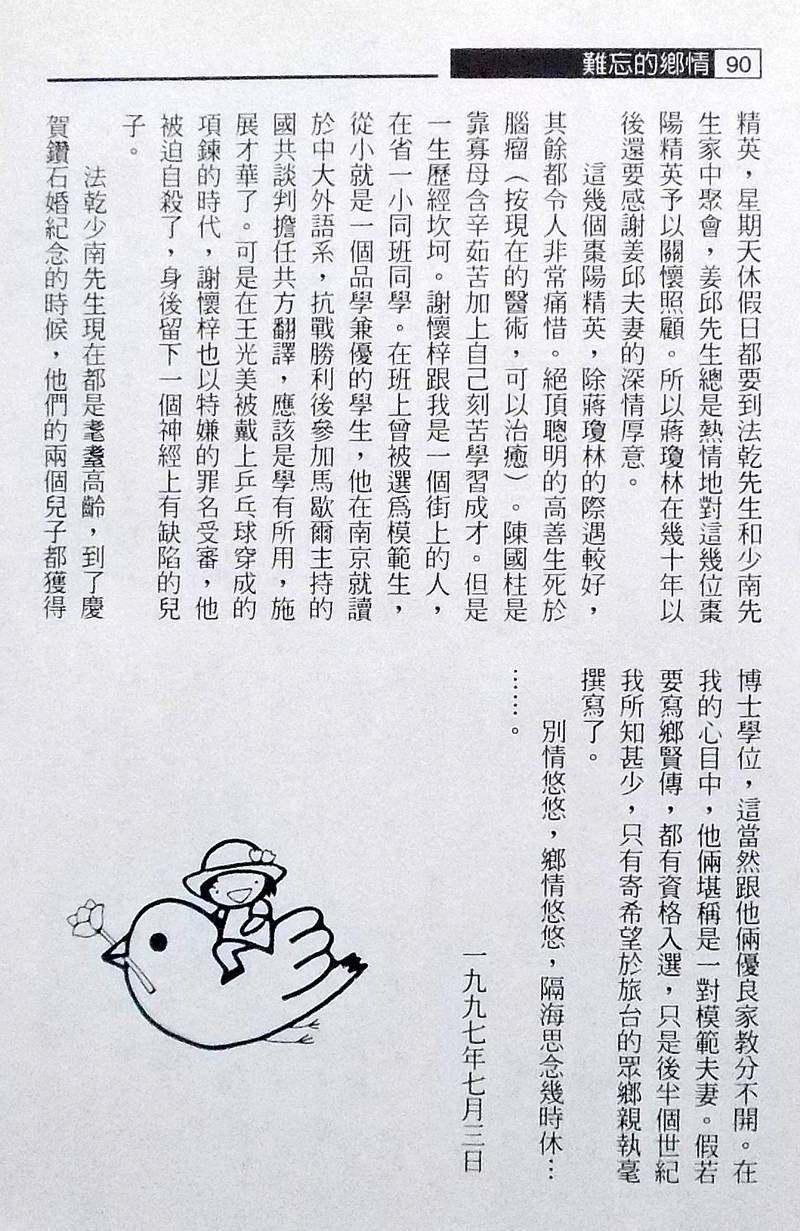 難忘的鄉情 90
精英，星期天休假日都要到法乾先生和少南先
生家中聚會，姜邱先生總是熱情地對這幾位棗
陽精英予以關懷照顧。所以蔣瓊林在幾十年以
後還要感謝姜邱夫妻的深情厚意。
這幾個棗陽精英，除蔣瓊林的際遇較好，
其餘都令人非常痛惜。絕頂聰明的高善生死於
腦瘤（按現在的醫術，可以治癒）。陳國柱是
靠寡母含辛茹苦加上自己刻苦學習成才。但是
一生歷經坎坷。謝懷梓跟我是一個街上的人，
在省一小同班同學。在班上曾被選爲模範生，
從小就是一個品學兼優的學生，他在南京就讀
於中大外語系，抗戰勝利後參加馬歇爾主持的
國共談判擔任共方翻譯，應該是學有所用，施
展才華了。可是在王光美被戴上乒乓球穿成的
項鍊的時代，謝懷梓也以特嫌的罪名受審，他
被迫自殺了，身後留下一個神經上有缺陷的兒
子。
法乾少南先生現在都是耄耋高齡，到了慶
賀鑽石婚紀念的時候，他們的兩個兒子都獲得
博士學位，這當然跟他倆優良家教分不開。在
我的心目中，他倆堪稱是一對模範夫妻。假若
要寫鄉賢傳，都有資格入選，只是後半個世紀
我所知甚少，只有寄希望於旅台的眾鄉親執毫
撰寫了。
別情悠悠，鄉情悠悠，隔海思念幾時休…
……。
一九九七年七月三日